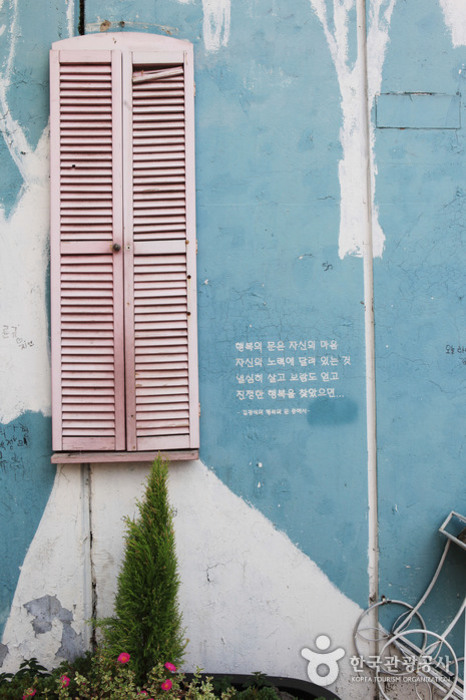 행복의 문은 자신의 마음
자신의 노력에 달려 있는 것
열심히 살고 보람도 얻고
진정한 행복을 찾았으면...
한국관광공사
KOREA TOURISM ORGANIZATION